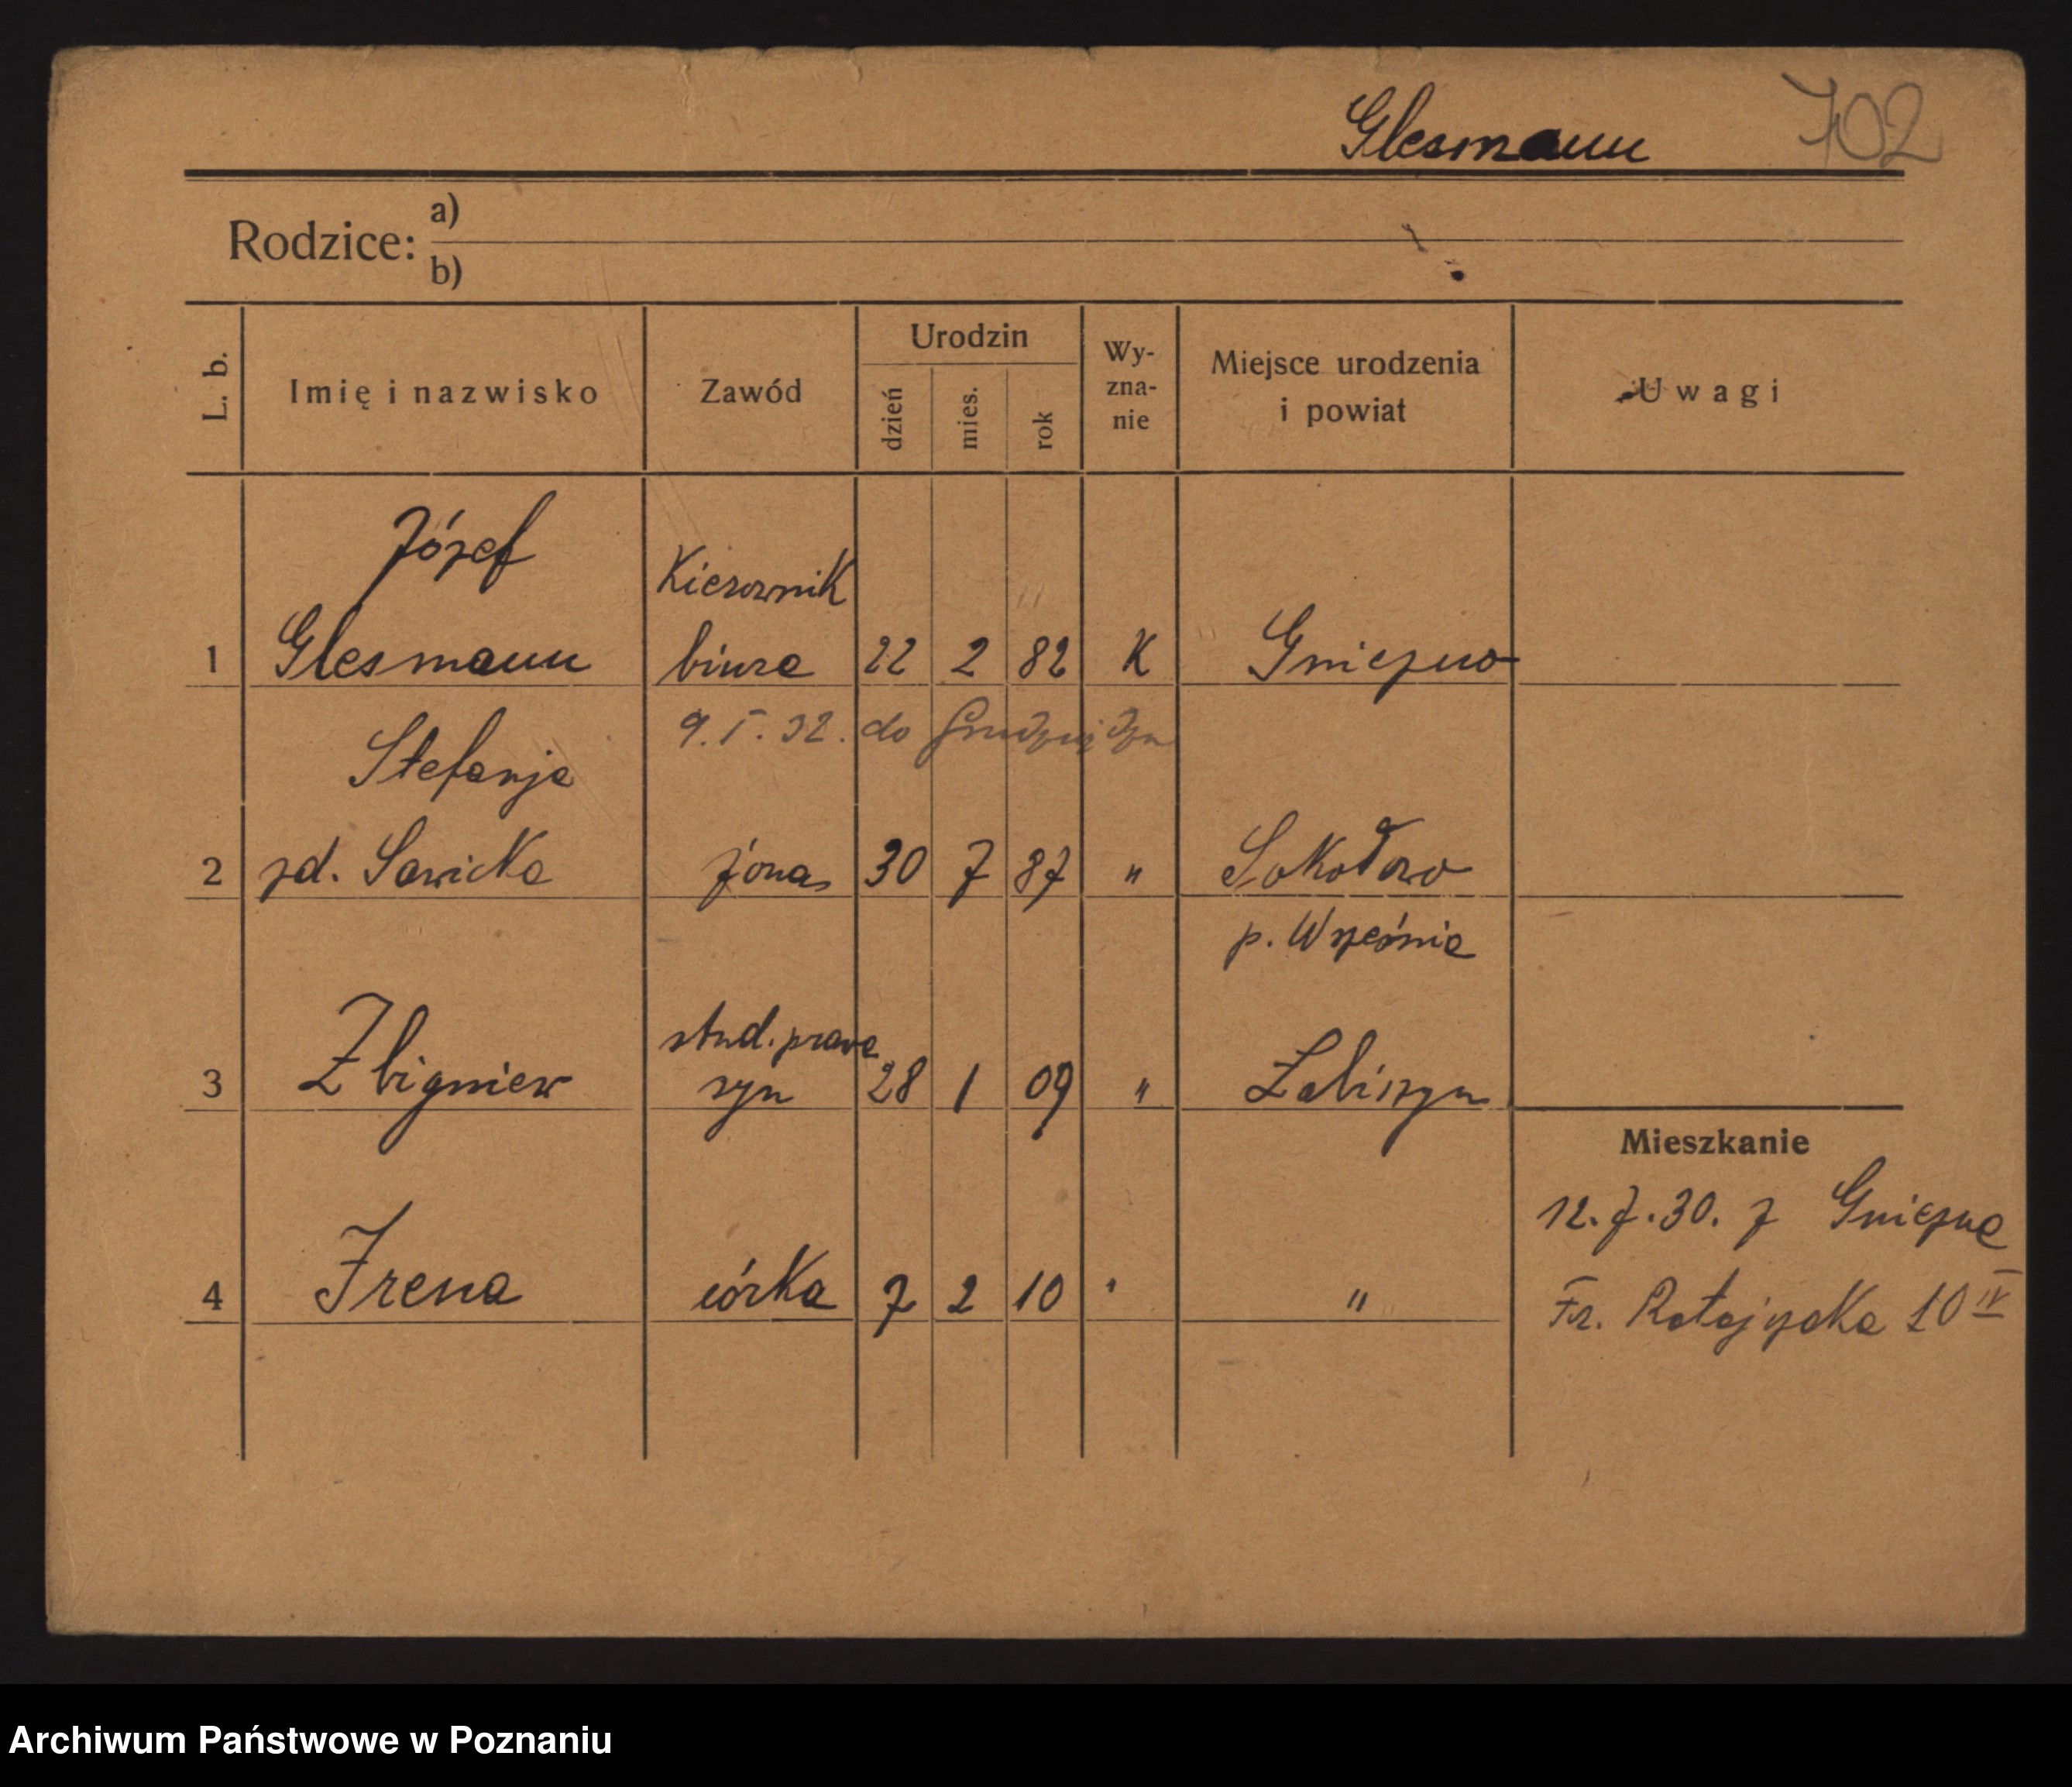 Glesmann 702
Rodzice: a)
b)
L. b. Imię i nazwisko Zawód Urodzin dzień mies. rok Wy-zna-nie Miejsce urodzenia i powiat Uwagi
Józef
Kierownik
1 Glesmann biura 22 2 82 K Gniezno
9.I.32. do Grudziądza
Stefanja
2 zd. Sawicka żona 30 7 87 " Sokołowo
p. Września
stud. prawa
3 Zbigniew syn 28 1 09 " Łabiszyn
4 Irena córka 7 2 10 " "
Mieszkanie
12.7.30. z Gniezna
Fr. Ratajczaka 10 IV
Archiwum Państwowe w Poznaniu